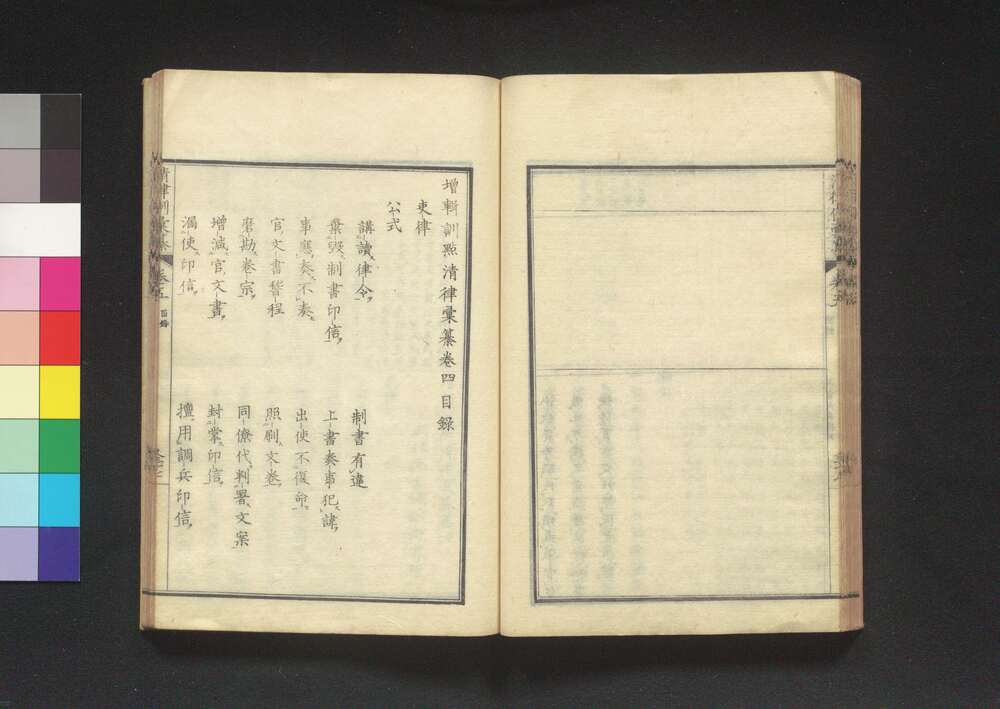 增輯訓點清律彙纂卷四目錄
吏律
公式
講讀律令
制書有違
棄毀制書印信
上書奏事犯諱
事應奏不奏
出使不復命
官文書稽程
照刷文卷
磨勘卷宗
同僚代判署文案
增減官文書
封掌印信
漏使印信
擅用調兵印信